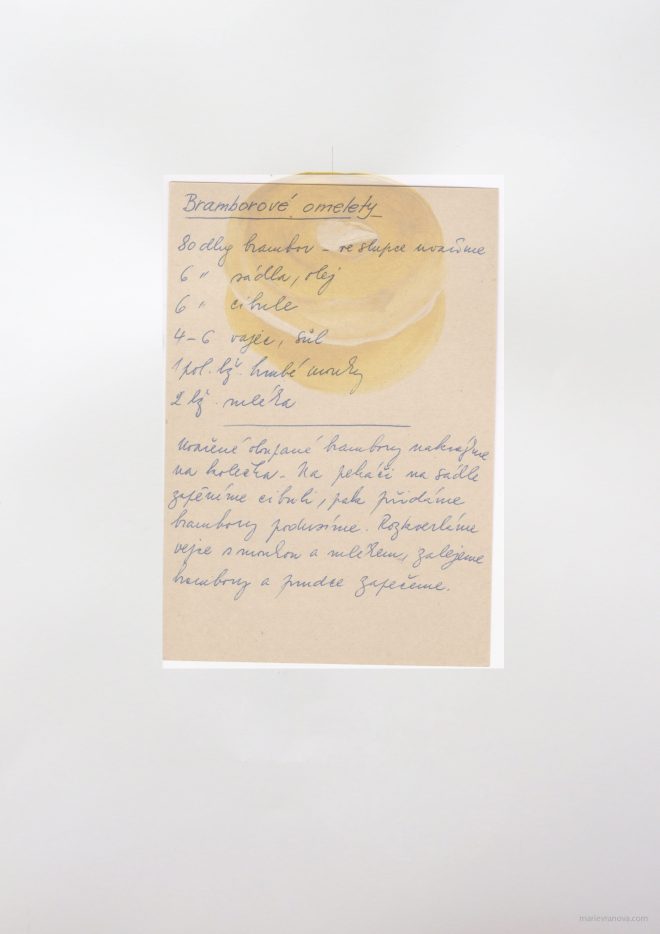 Bramborové omelety
80 dkg brambor – ve slupce uvaříme
6 " sádla, olej
6 " cibule
4–6 vajec, sůl
1 pol. lž. hrubé mouky
2 lž. mléka
Uvařené oloupané brambory nakrájíme
na kolečka. Na pekáči na sádle
zapěníme cibuli, pak přidáme
brambory podusíme. Rozkverláme
vejce s moukou a mlékem, zalejeme
brambory a prudce zapečeme.
marievranova.com